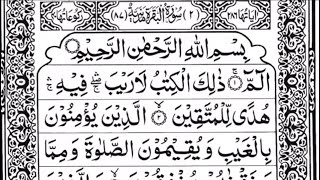 اٰیَاتُهَا ٢٨٦ (٢) سُوْرَةُ الْبَقَرَةِ مَدَنِيَّةٌ (٨٧) رُكُوْعَاتُهَا
بِسْمِ اللّٰهِ الرَّحْمٰنِ الرَّحِيْمِ
الٓمّٓ ۚ﴿١﴾ ذٰلِكَ الْكِتٰبُ لَا رَيْبَ ۛ فِيْهِ ۛ
هُدًى لِّلْمُتَّقِيْنَ ﴿٢﴾ الَّذِيْنَ يُؤْمِنُوْنَ
بِالْغَيْبِ وَيُقِيْمُوْنَ الصَّلٰوةَ وَمِمَّا